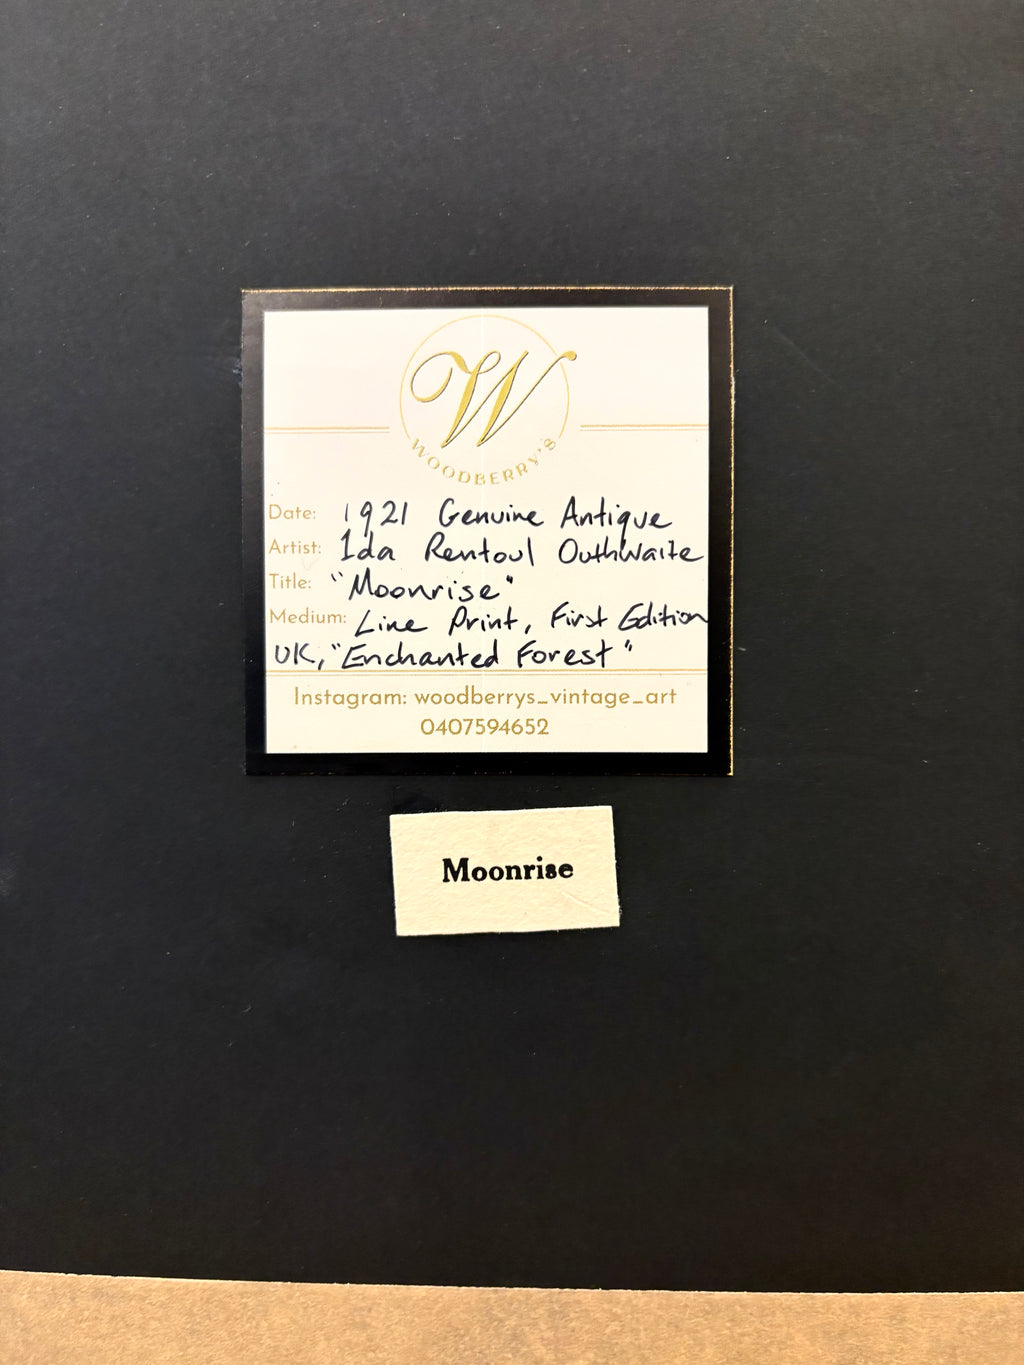 W
WOODBERRY'S
Date: 1921 Genuine Antique
Artist: Ida Rentoul Outhwaite
Title: "Moonrise"
Medium: Line Print, First Edition
UK, "Enchanted Forest"
Instagram: woodberrys_vintage_art
0407594652
Moonrise